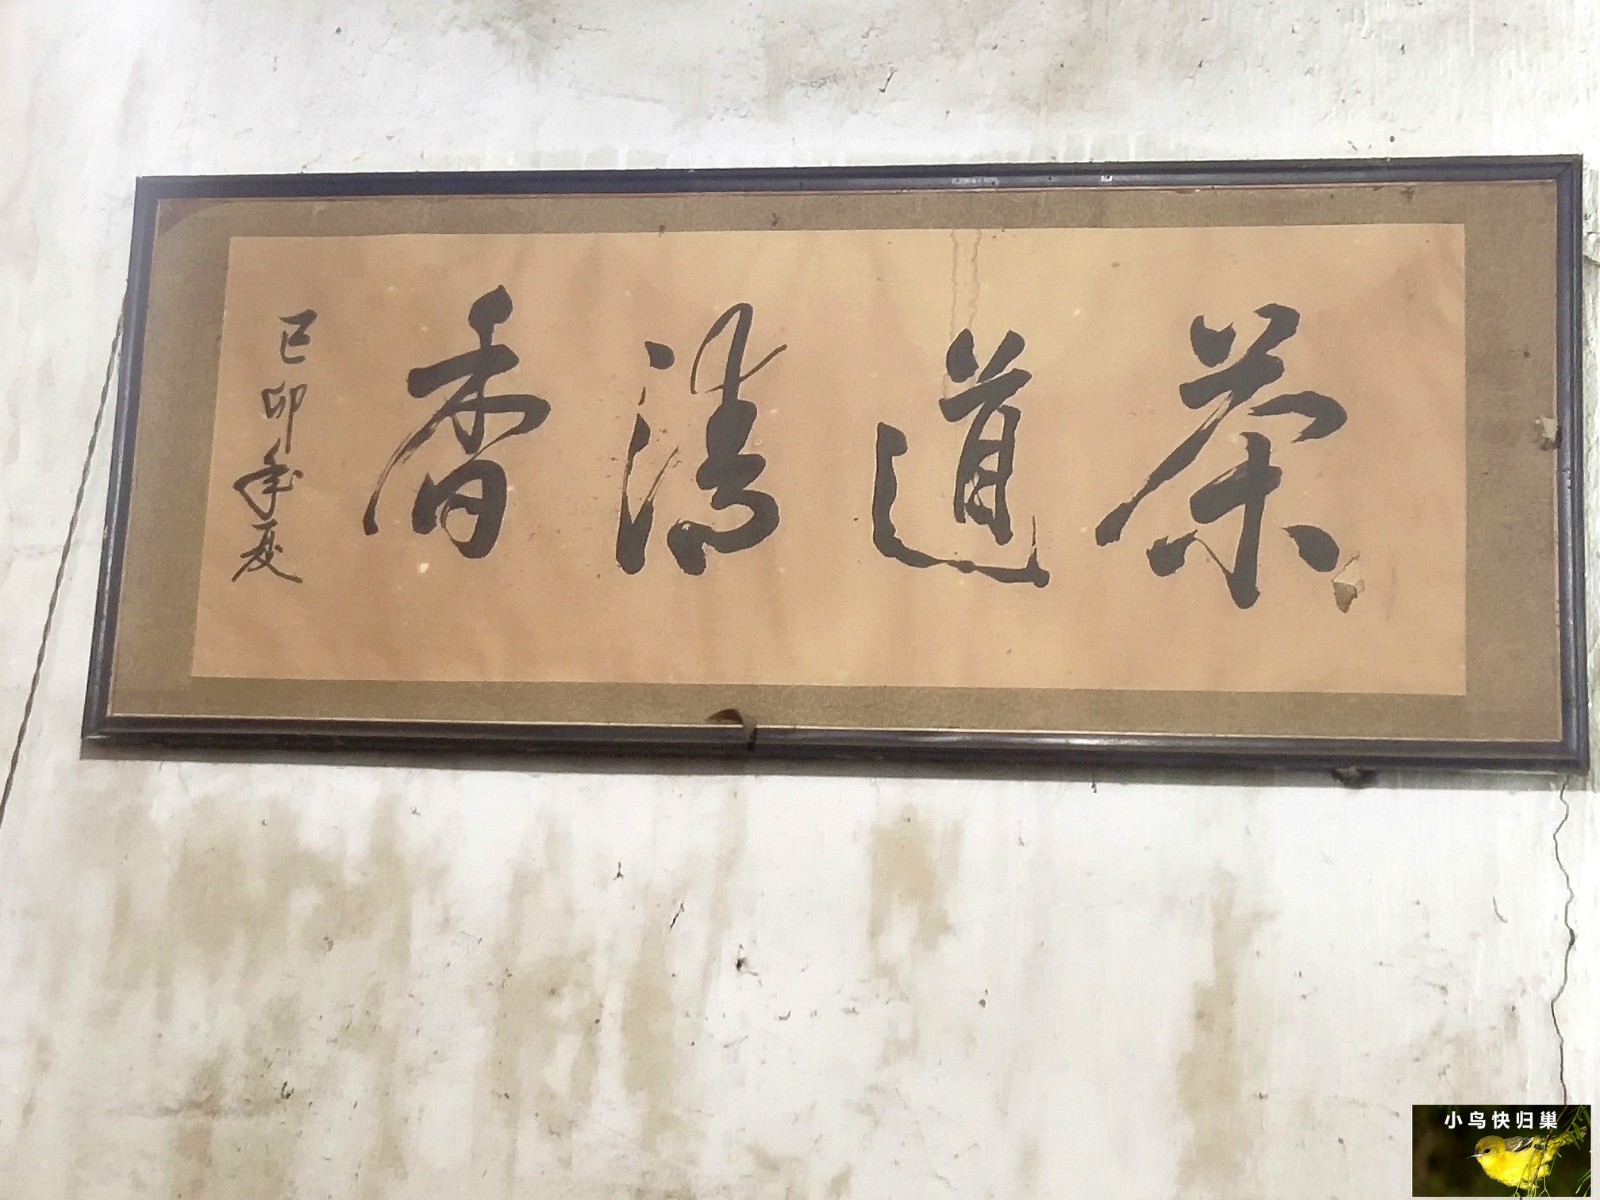 茶道清香
己卯年夏
小鸟快归巢